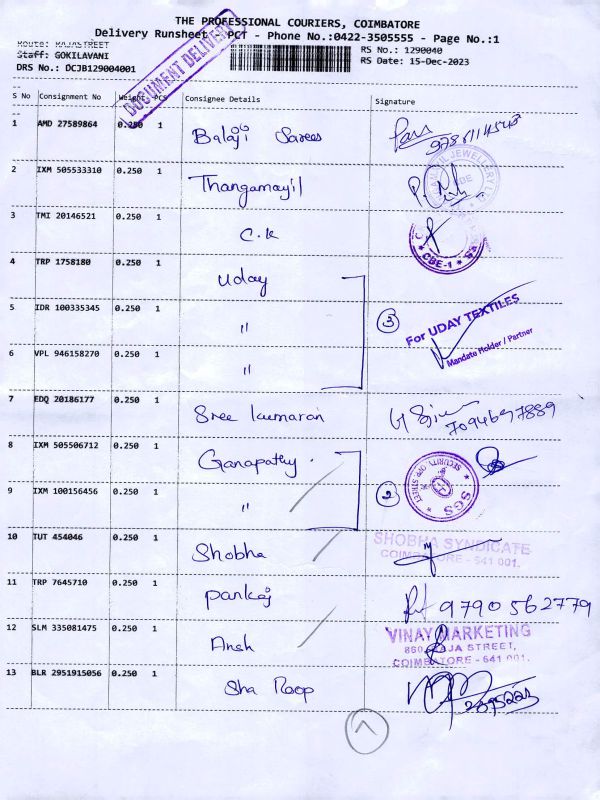 THE PROFESSIONAL COURIERS, COIMBATORE
Delivery Runsheet - PCT - Phone No.:0422-3505555 - Page No.:1
Route: RAJASTREET
RS No.: 1290040
Staff: GOKILAVANI
RS Date: 15-Dec-2023
DRS No.: DCJB129004001
DOCUMENT DELIVERY
S No Consignment No Weight PCS Consignee Details Signature
1 AMD 27589864 0.250 1 Balaji Sarees
2 IXM 505533310 0.250 1 Thangamayil
JEWELLERY
3 TMI 20146521 0.250 1 C.K
* CBE-1 *
4 TRP 1758180 0.250 1 Uday
5 IDR 100335345 0.250 1 " 3 For UDAY TEXTILES
Mandate Holder / Partner
6 VPL 946158270 0.250 1 "
7 EDQ 20186177 0.250 1 Sree kumaran 7094697889
8 IXM 505506712 0.250 1 Ganapathy
9 IXM 100156456 0.250 1 " 2 SGS
10 TUT 454046 0.250 1 Shobha SHOBHA SYNDICATE
COIMBATORE - 641 001.
11 TRP 7645710 0.250 1 Pankaj 9790562779
12 SLM 335081475 0.250 1 Ansh VINAY MARKETING
860, RAJA STREET,
COIMBATORE - 641 001.
13 BLR 2951915056 0.250 1 Sha Roop